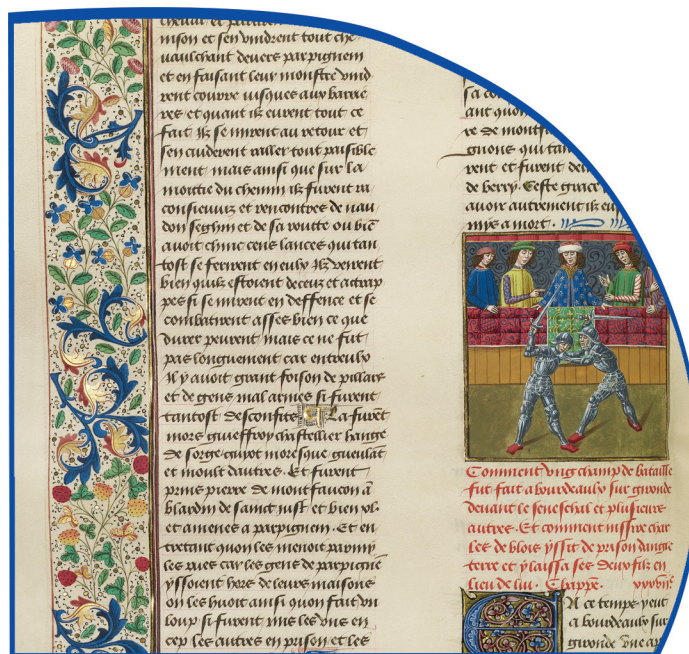 nison et sen vindrent tout che
vaulchant devers parpignem
et en faisant leur monstre vind
rent courre jusques aux barrie
res et quant ilz eurent tout ce
fait ilz se mirent au retour et
sen cuderent raller tout paisible
ment mais ainsi que sur la
moittie du chemin ilz furent ra
consieuviz et rencontres de nau
don seghin et de sa routte ou bien
avoit chincq cens lances qui tan
tost se ferirent en eulx Ilz veirent
bien quilz estoient deceuz et attrap
pes si se mirent en deffence et se
combatirent asses bien ce que
durer peurent mais ce ne fut
pas longuement car entre eulx
Il y avoit grant foison de pillars
et de gens mal armes si furent
tantost desconfits La furent
mors gueffroy chastellier hange
de sorge guyot moresque
et moult dautres. Et furent
prins pierre de montfaucon a
blardin de sainct just et bien
et amenes a parpignem. Et en
tretant quon les menoit parmy
les rues car les gens de parpigne
yssoient hors de leurs maisons
on les huoit ainsi quon fait un
loup si furent mis les uns en
cep les autres en prison et les
sa
ant quon
re de montf
gnons qui tan
rent et furent
de berry. Ceste grace
avoir autrement ilz eu
mys a mort.
Comment ung champ de bataille
fut fait a bourdeaulx sur gironde
devant le seneschal et plusieurs
autres. Et comment messire char
les de blois yssit de prison dangle
terre et y laissa ses deux filz en
lieu de lui. Chappe.
A ce temps
a bourdeaulx sur
gironde une ap